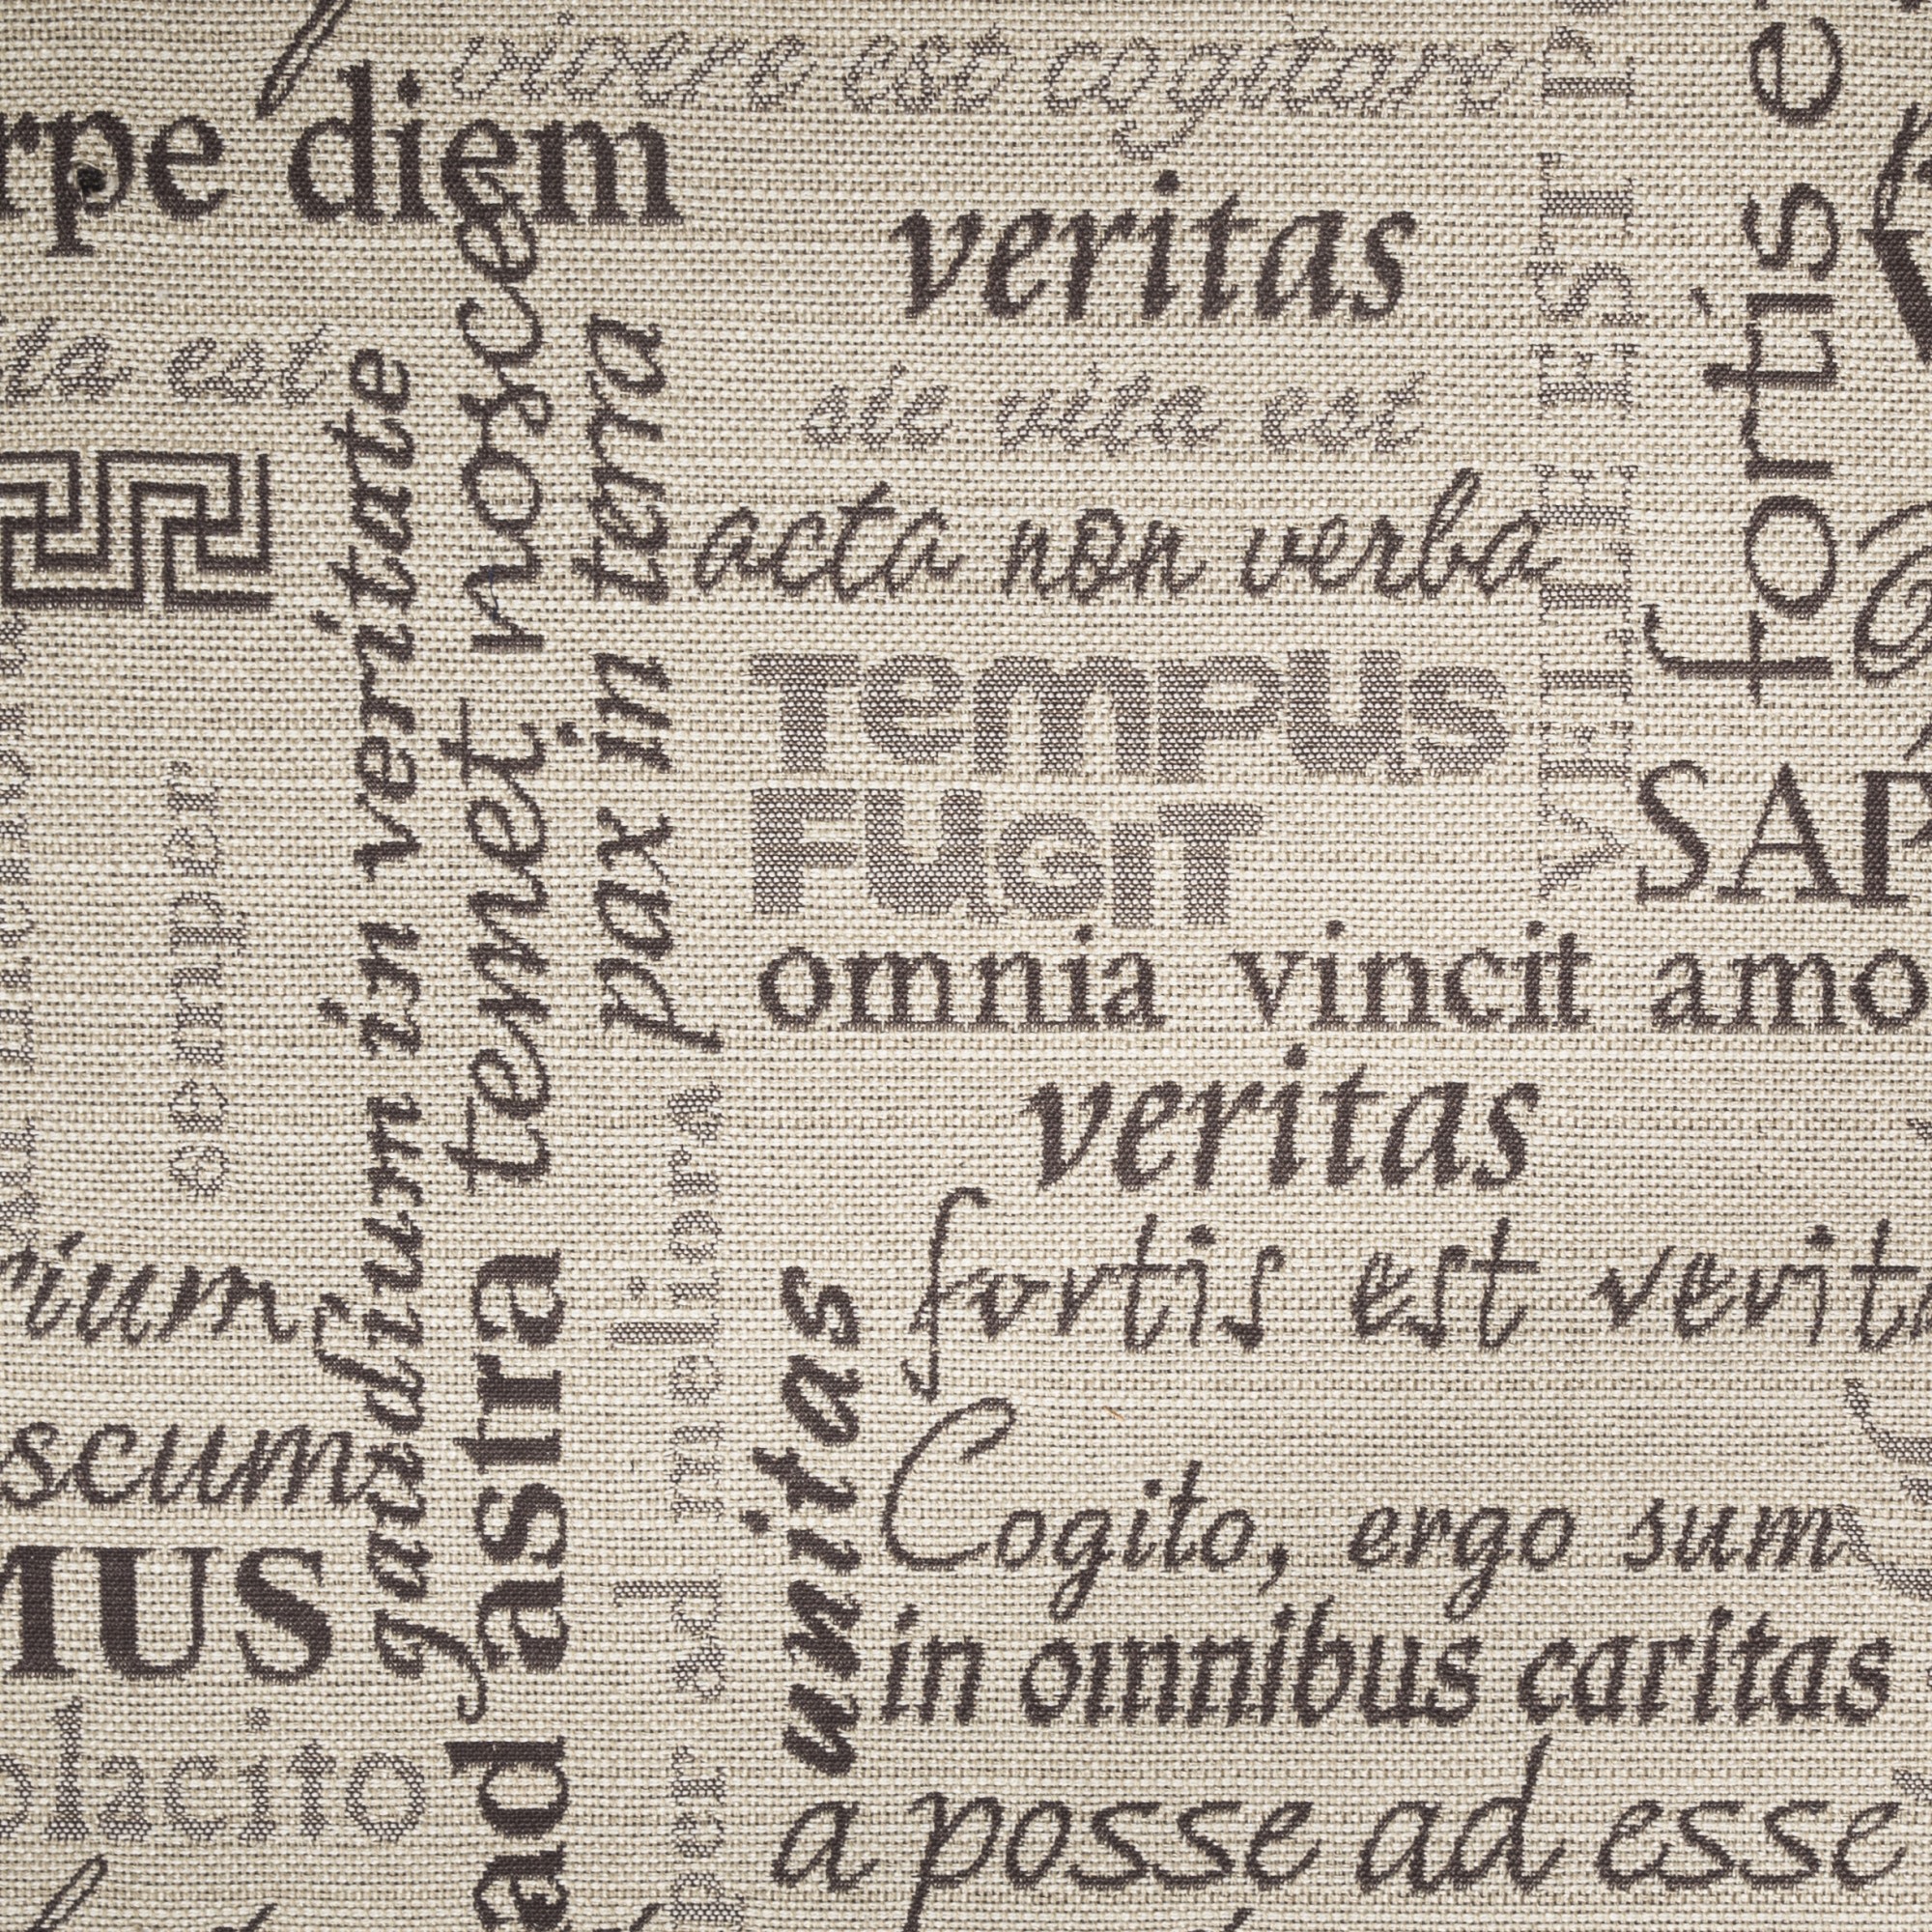 vivere est cogitare
rpe diem
veritas
ta est
sic vita est
acta non verba
TEMPUS
FUGIT
omnia vincit amo
veritas
fortis est verit
Cogito, ergo sum
in omnibus caritas
a posse ad esse
rium
scum
MUS
placito
semper
gaudium in veritate
temet nosce
pax in terra
ad astra
semper ad meliora
unitas
VELLE EST P
fortis e
SAP